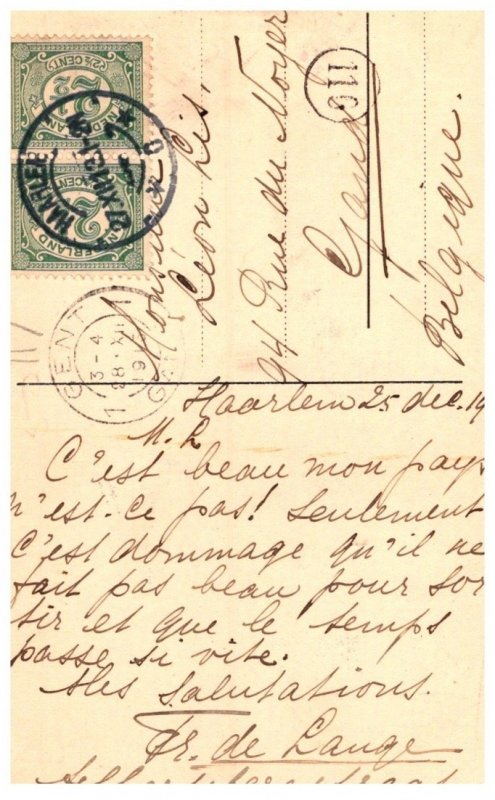 2½ CENT 2½ CENT
HAARLEM
GENT
3-4
28 XII
116
Monsieur
Léon Lis,
94 Rue du Noyer
Gand
Belgique.
Haarlem 25 dec. 19
M. L
C'est beau mon pays
n'est-ce pas! Seulement
c'est dommage qu'il ne
fait pas beau pour sor
tir et que le temps
passe si vite.
Mes salutations.
Fr. de Lange